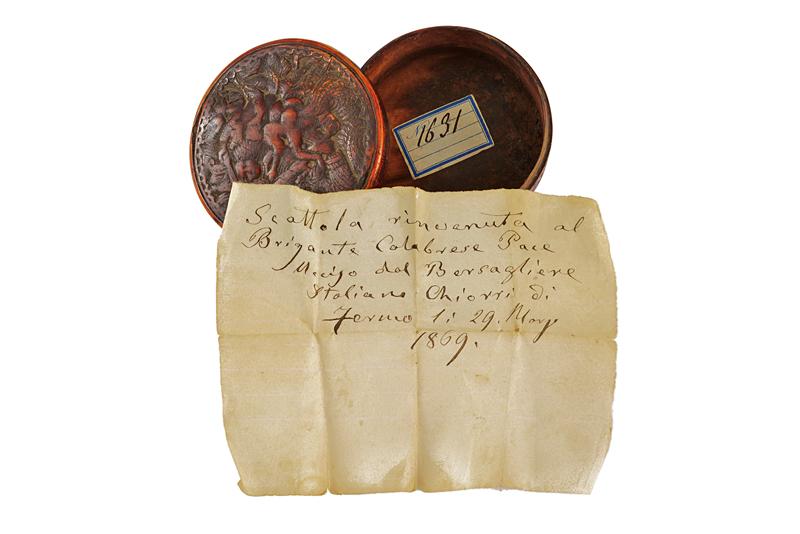 1631
Scattola rinvenuta al
Brigante Calabrese Pace
Ucciso dal Bersagliere
Italiano Chiorri di
Fermo li 29. Marzo
1869.